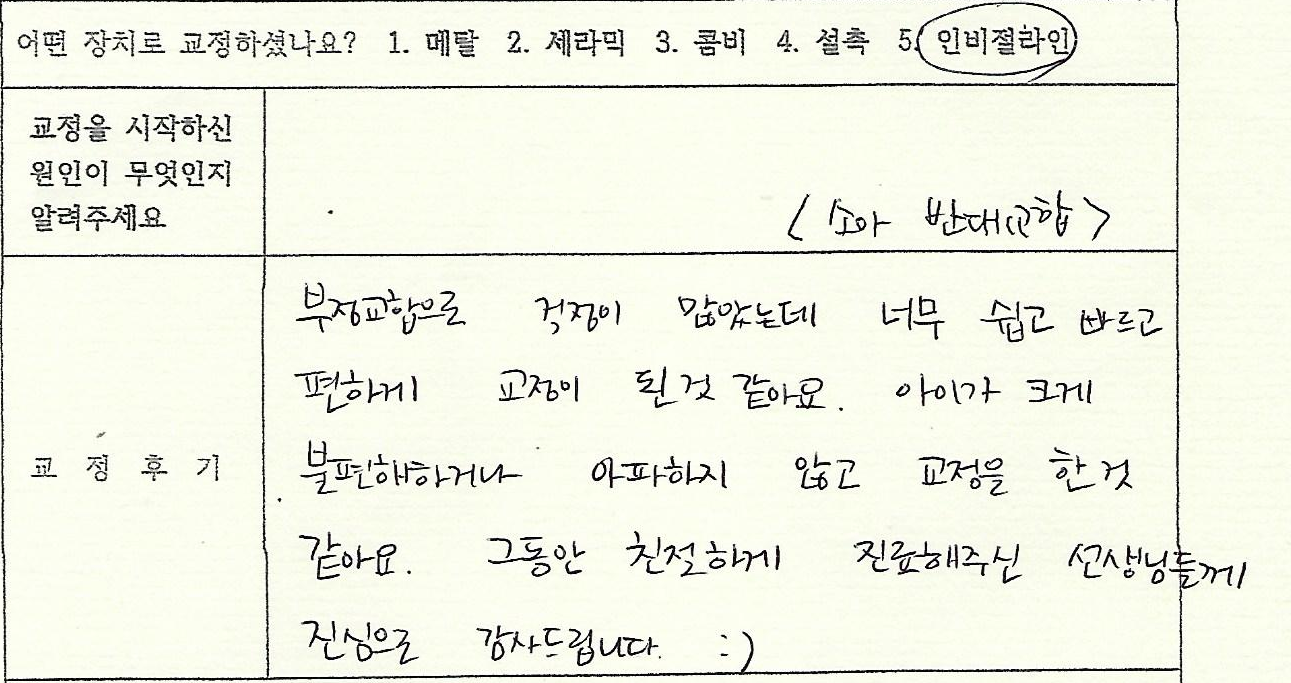 어떤 장치로 교정하셨나요? 1. 메탈 2. 세라믹 3. 콤비 4. 설측 5. 인비절라인
교정을 시작하신
원인이 무엇인지
알려주세요
< 소아 반대교합 >
교 정 후 기
부정교합으로 걱정이 많았는데 너무 쉽고 빠르고
편하게 교정이 된것 같아요. 아이가 크게
불편해하거나 아파하지 않고 교정을 한 것
같아요. 그동안 친절하게 진료해주신 선생님들께
진심으로 감사드립니다. :)